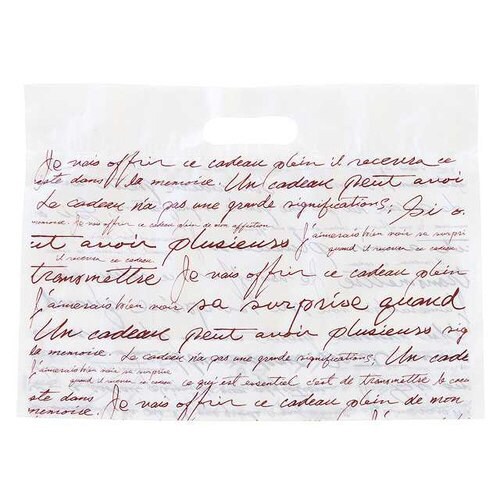 Je vais offrir ce cadeau plein il recevra ce
ste dans la memoire. Un cadeau peut avoi
Le cadeau n'a pas une grande significations, Si o.
memoire. Je vais offrir ce cadeau plein de mon affection j'aimerais bien voir sa surpri
ut avoir plusieurs quand il recevra ce cadeau
il recevra ce cadeau
transmettre Je vais offrir ce cadeau plein
j'aimerais bien voir sa surprise quand
Un cadeau peut avoir plusieurs sig
la memoire. Le cadeau n'a pas une grande significations. Un cade
j'aimerais bien voir sa surprise
quand il recevra ce cadeau ce qui est essentiel c'est de transmettre le coeu
ste dans Je vais offrir ce cadeau plein de mon
memoire.